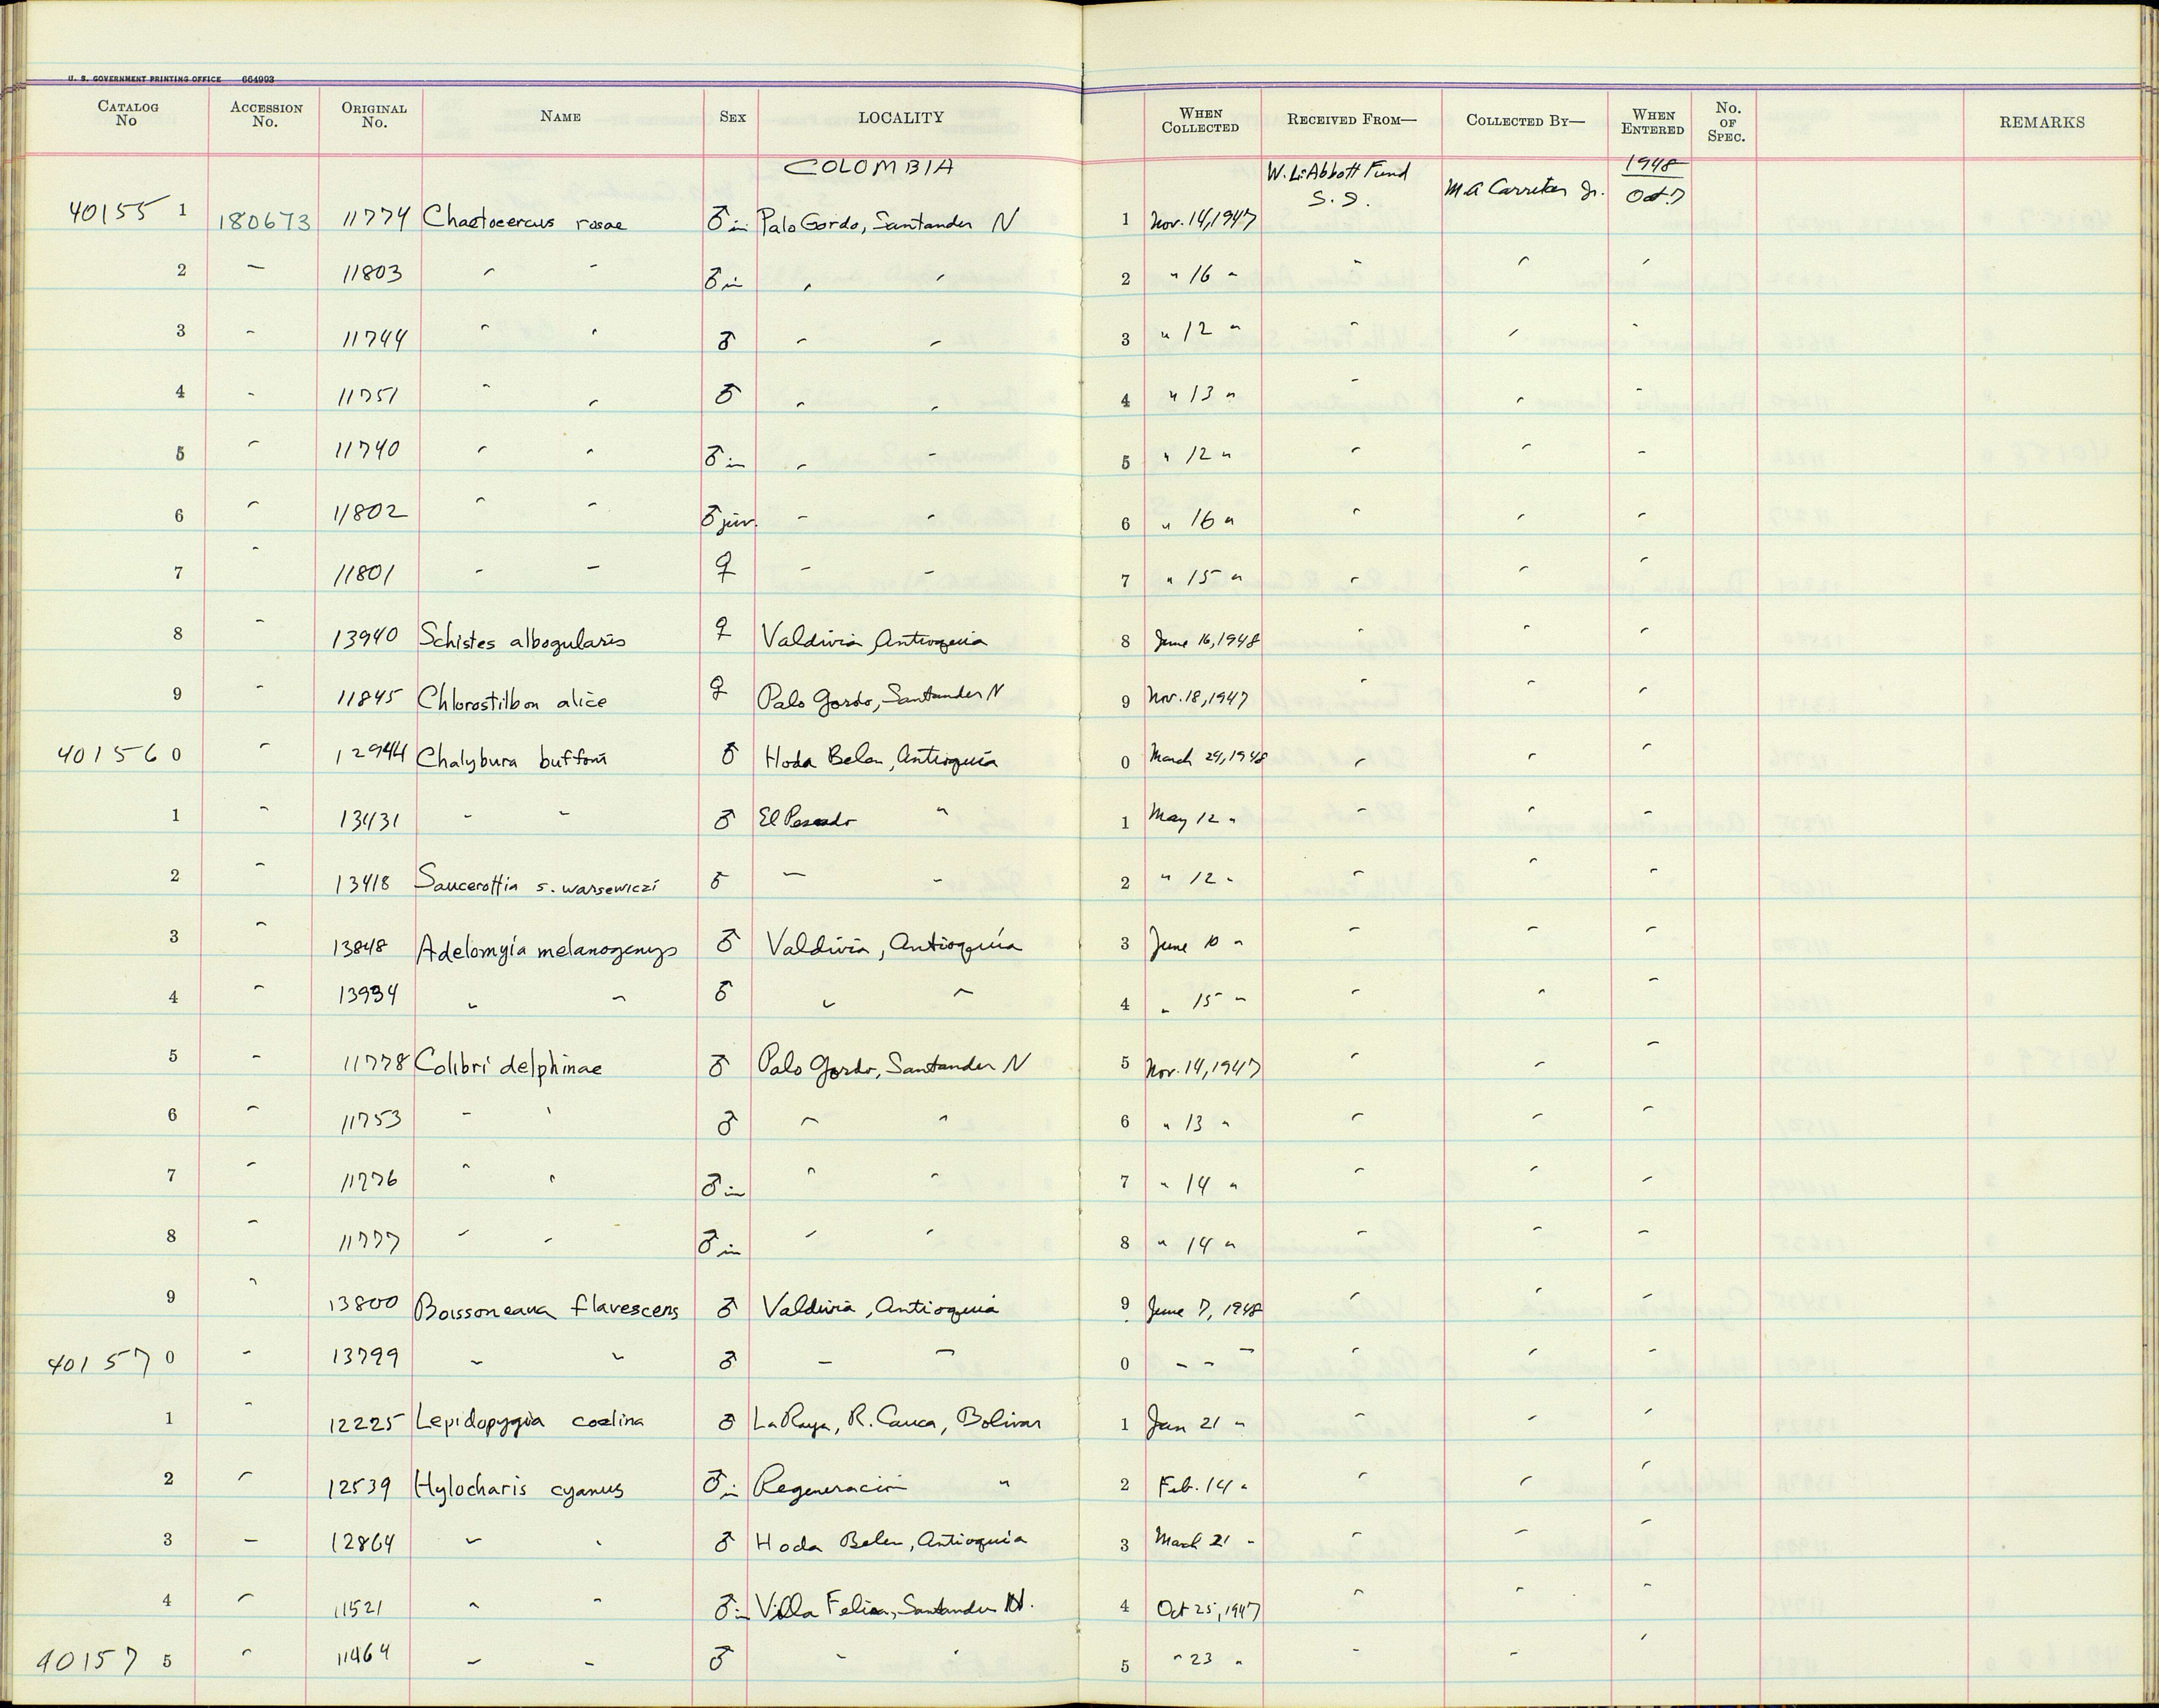 U. S. GOVERNMENT PRINTING OFFICE 664993
CATALOG No ACCESSION No. ORIGINAL No. NAME SEX LOCALITY WHEN COLLECTED RECEIVED FROM— COLLECTED BY— WHEN ENTERED No. OF SPEC. REMARKS
COLOMBIA W. L. Abbott Fund S. I. M A Carriker Jr. 1948 Oct. 7
40155 1 180673 11774 Chaetocercus rosae ♂ im Palo Gordo, Santander N 1 Nov. 14, 1947
2 " 11803 " " ♂ im " " 2 " 16 " " " "
3 " 11744 " " ♂ " " 3 " 12 " " " "
4 " 11751 " " ♂ " " 4 " 13 " " " "
5 " 11740 " " ♂ im " " 5 " 12 " " " "
6 " 11802 " " ♂ juv. " " 6 " 16 " " " "
7 " 11801 " " ♀ " " 7 " 15 " " " "
8 " 13940 Schistes albogularis ♀ Valdivia Antioquia 8 June 16, 1948 " " "
9 " 11845 Chlorostilbon alice ♀ Palo Gordo, Santander N 9 Nov. 18, 1947 " " "
40156 0 " 12944 Chalybura buffoni ♂ Hoda Belen, Antioquia 0 March 29, 1948 " " "
1 " 13431 " " ♂ El Pescado " 1 May 12 " " " "
2 " 13418 Saucerottia s. warsewiczi ♂ " " 2 " 12 " " " "
3 " 13848 Adelomyia melanogenys ♂ Valdivia, Antioquia 3 June 10 " " " "
4 " 13934 " " ♂ " " 4 " 15 " " " "
5 " 11778 Colibri delphinae ♂ Palo Gordo, Santander N 5 Nov. 14, 1947 " " "
6 " 11753 " " ♂ " " 6 " 13 " " " "
7 " 11776 " " ♂ im " " 7 " 14 " " " "
8 " 11777 " " ♂ im " " 8 " 14 " " " "
9 " 13800 Boissoneaua flavescens ♂ Valdivia, Antioquia 9 June 7, 1948 " " "
40157 0 " 13799 " " ♂ " " 0 " " " " " "
1 " 12225 Lepidopygia coelina ♂ La Raya, R. Cauca, Bolivar 1 Jan 21 " " " "
2 " 12539 Hylocharis cyanus ♂ im Regeneración " 2 Feb. 14 " " " "
3 " 12864 " " ♂ Hoda Belen, Antioquia 3 March 21 " " " "
4 " 11521 " " ♂ im Villa Felisa, Santander N. 4 Oct 25, 1947 " " "
40157 5 " 11464 " " ♂ " " 5 " 23 " " " "